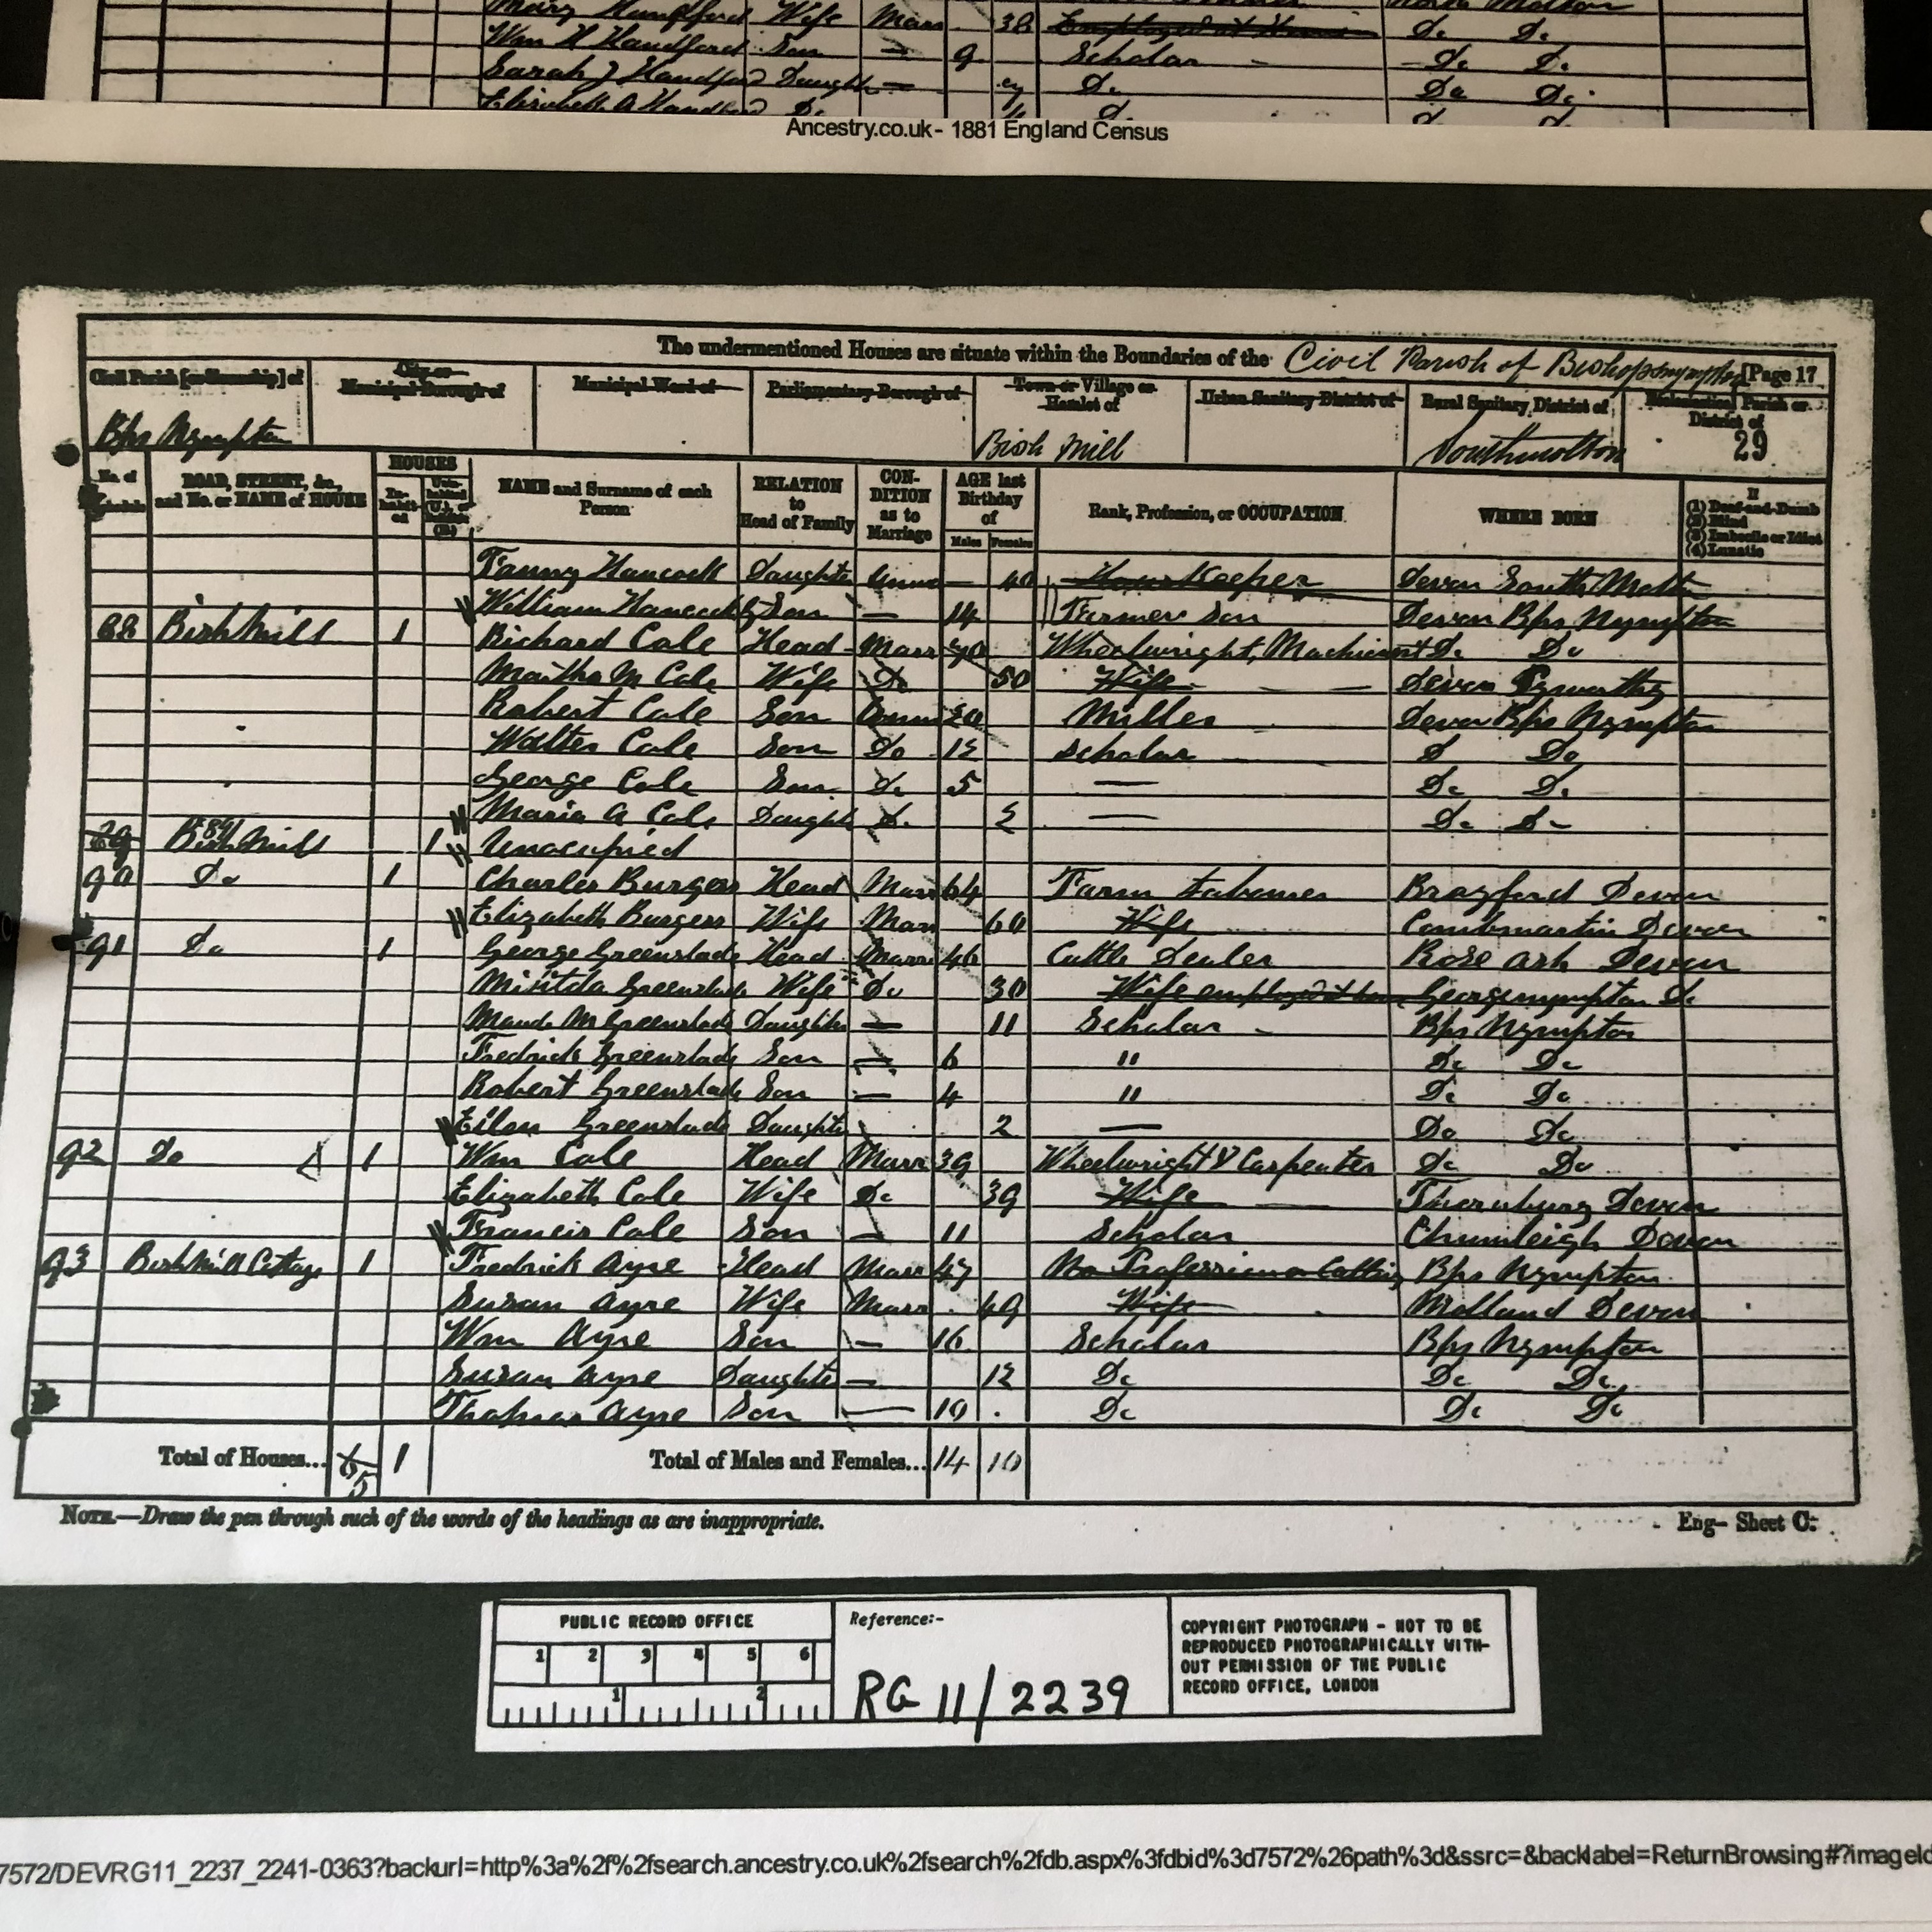 Mary Handford Wife Marr 38 Do Do
Wm H Handford Son 9 Scholar Do Do
Sarah J Handford Daughter Do Do Do
Elizabeth A Handford Do
Ancestry.co.uk- 1881 England Census
The undermentioned Houses are situate within the Boundaries of the Civil Parish of Bishopsnympton [Page 17
Civil Parish [or Township] of City or Municipal Borough of Municipal Ward of Parliamentary Borough of Town or Village or Hamlet of Urban Sanitary District of Rural Sanitary District of Ecclesiastical Parish or District of
Bps Nympton Bish Mill Southmolton 29
No. of Schedule ROAD, STREET, &c., and No. or NAME of HOUSE HOUSES Inhabited Uninhabited (U.), or Building (B.) NAME and Surname of each Person RELATION to Head of Family CONDITION as to Marriage AGE last Birthday of Males Females Rank, Profession, or OCCUPATION WHERE BORN If (1) Deaf-and-Dumb (2) Blind (3) Imbecile or Idiot (4) Lunatic
Fanny Hancock Daughter Unm 40 House Keeper Devon South Molton
William Hancock Son — 14 Farmers Son Devon Bps Nympton
88 Bish Mill 1 Richard Cole Head Marr Wheelwright, Machinist Do Do
Martha M Cole Wife Do 50 Wife Devon
Robert Cole Son Unm 20 Miller Devon Bps Nympton
Walter Cole Son Do 12 Scholar D Do
George Cole Son Do 5 — Do Do
Maria A Cole Daught Do — Do Do
89 Bish Mill 1 Unocupied
90 Do 1 Charles Burgess Head Marr 64 Farm Labourer Brayford Devon
Elizabeth Burgess Wife Marr 60 Wife Combmartin Devon
91 Do 1 George Greenslade Head Marr 46 Cattle Dealer Rose Ash Devon
Greenslade Wife Do 30 Wife employed at home Georgenympton Do
Maude M Greenslade Daughter — 11 Scholar Bps Nympton
Fredrick Greenslade Son — 6 " Do Do
Robert Greenslade Son — 4 " Do Do
Eilen Greenslade Daughter 2 — Do Do
92 Do 1 Wm Cole Head Marr 39 Wheelwright & Carpenter Do Do
Elizabeth Cole Wife Do 39 Wife Thornbury Devon
Francis Cole Son — 11 Scholar Chumleigh Devon
93 Bish Mill Cottage 1 Fredrick Ayre Head Marr 47 No Profession or Calling Bps Nympton
Susan Ayre Wife Marr 49 Wife Molland Devon
Wm Ayre Son — 16 Scholar Bps Nympton
Susan Ayre Daughter — 12 Do Do Do
Thomas Ayre Son — 10 Do Do Do
Total of Houses... 5 1 Total of Males and Females... 14 10
NOTE.—Draw the pen through such of the words of the headings as are inappropriate. Eng— Sheet C.
PUBLIC RECORD OFFICE
1 2 3 4 5 6
1 2
Reference:-
RG 11/2239
COPYRIGHT PHOTOGRAPH - NOT TO BE
REPRODUCED PHOTOGRAPHICALLY WITH-
OUT PERMISSION OF THE PUBLIC
RECORD OFFICE, LONDON
7572/DEVRG11_2237_2241-0363?backurl=http%3a%2f%2fsearch.ancestry.co.uk%2fsearch%2fdb.aspx%3fdbid%3d7572%26path%3d&ssrc=&backlabel=ReturnBrowsing#?imageId